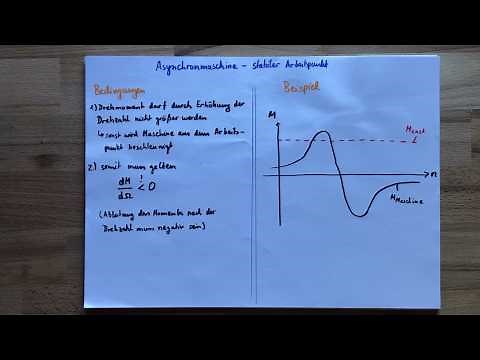 Asynchronmaschine – stabiler Arbeitspunkt
Bedingungen
1) Drehmoment darf durch Erhöhung der
Drehzahl nicht größer werden
↳ sonst wird Maschine aus dem Arbeits-
punkt beschleunigt
2) somit muss gelten
dM/dΩ ! < 0
(Ableitung des Moments nach der
Drehzahl muss negativ sein)
Beispiel
M
M Last
n
M Maschine